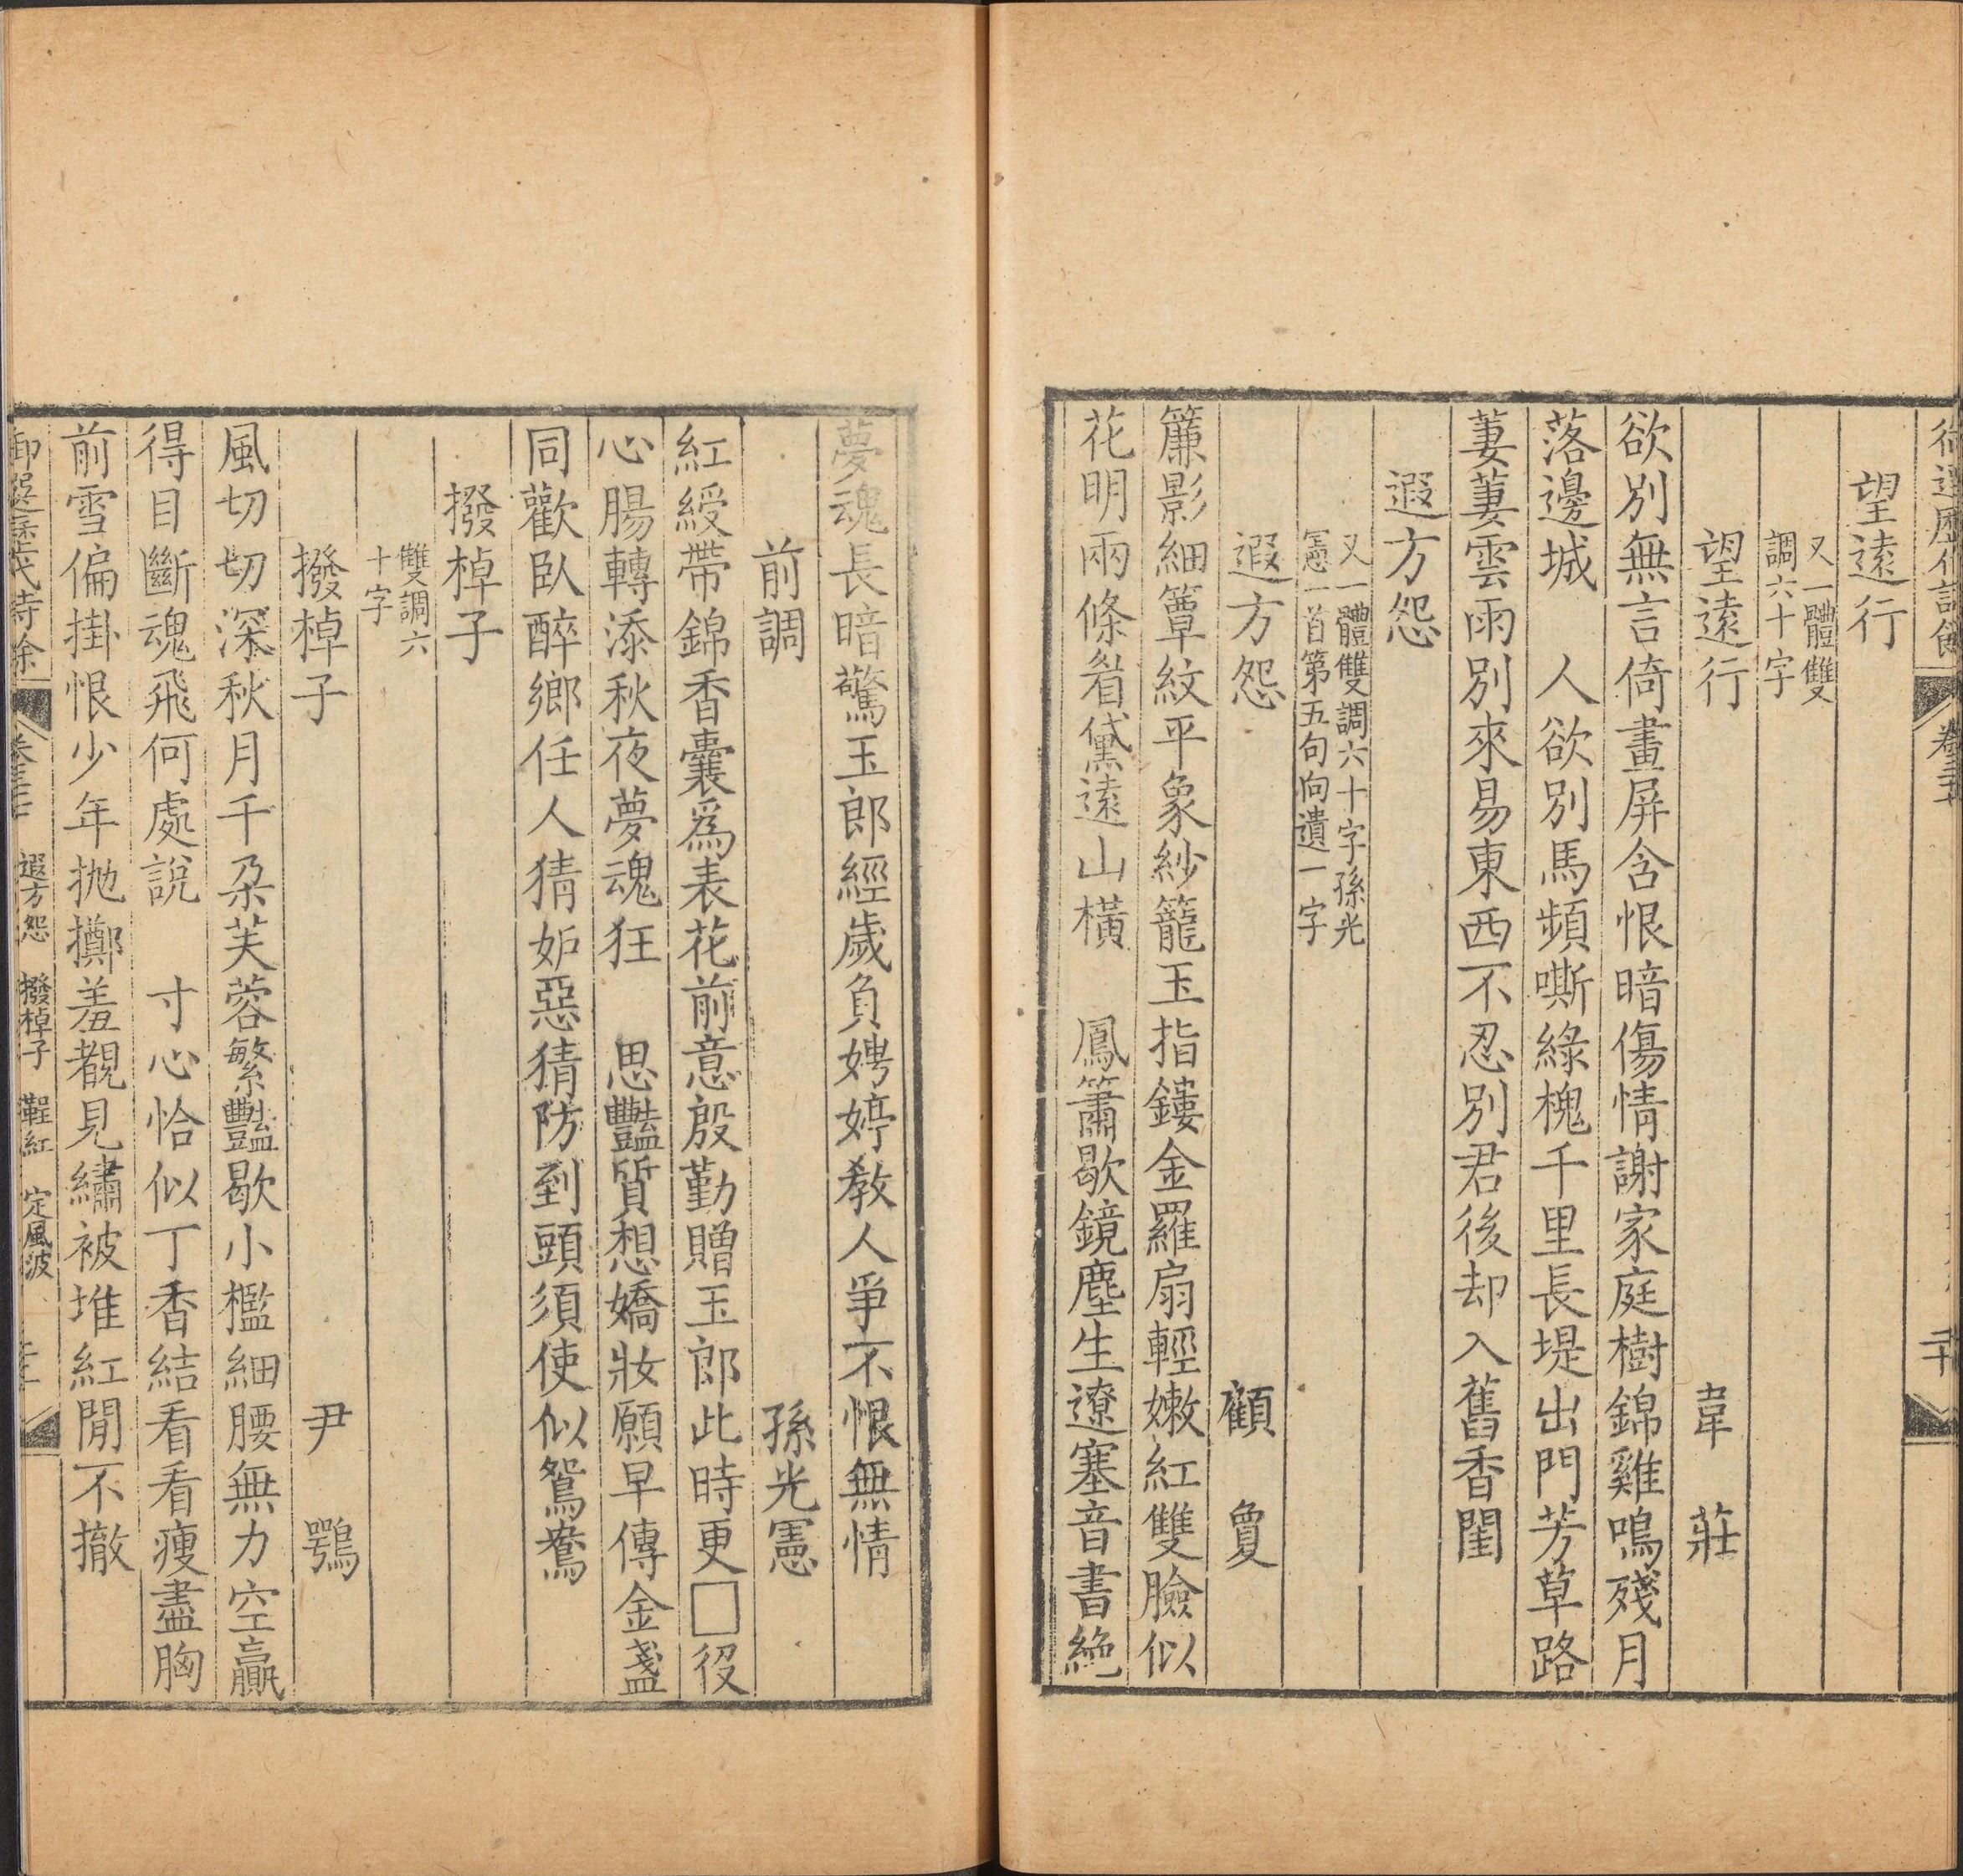 望遠行
又一體雙
調六十字
望遠行　韋莊
欲別無言倚畫屏含恨暗傷情謝家庭樹錦雞鳴殘月
落邊城　人欲別馬頻嘶綠槐千里長堤出門芳草路
萋萋雲雨別來易東西不忍別君後却入舊香閨
遐方怨
又一體雙調六十字孫光
憲一首第五句向遺一字
遐方怨　顧敻
簾影細簟紋平象紗籠玉指鏤金羅扇輕嫩紅雙臉似
花明兩條眉黛遠山橫　鳳簫歇鏡塵生遼塞音書絶
夢魂長暗驚玉郎經歲負娉婷教人爭不恨無情
前調　孫光憲
紅綬帶錦香囊爲表花前意殷勤贈玉郎此時更□役
心腸轉添秋夜夢魂狂　思豔質想嬌妝願早傳金盞
同歡臥醉鄉任人猜妒惡猜防到頭須使似鴛鴦
撥棹子
雙調六
十字
撥棹子　尹鶚
風切切深秋月千朶芙蓉繁豔歇小檻細腰無力空贏
得目斷魂飛何處說　寸心恰似丁香結看看瘦盡胸
前雪偏掛恨少年拋擲羞覩見繡被堆紅閒不撤
御選歷代詩餘　遐方怨　撥棹子　鞓紅　定風波